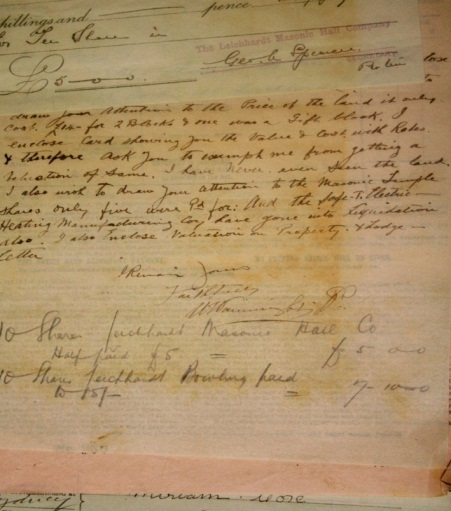 hillings and pence
for Ten Shares in
The Leichhardt Masonic Hall Company
£5-0-0. Geo. Spencer
draw your Attention to the Price of the land it only
Cost for 2 Blocks & one was a Gift block. I
enclose Card showing you the Value & Cost with Rates
& therefore Ask you to exempt me from getting a
Valuation of Same. I have never even Seen the land.
I also wish to draw your Attention to the Masonic Temple
Shares only five were Pd for. And the Safe-T-Electric
Heating Manufacturing Coy have gone into liquidation
also. I also Enclose Valuation on Property. & Lodge
Letter
I Remain Yours
Faithfully
10 Shares Leichhardt Masonic Hall Co
Half paid £5 = £5 0-0
10 Shares Leichhardt Bowling paid
to 15/- = 7-10-0
Sydney Miriam